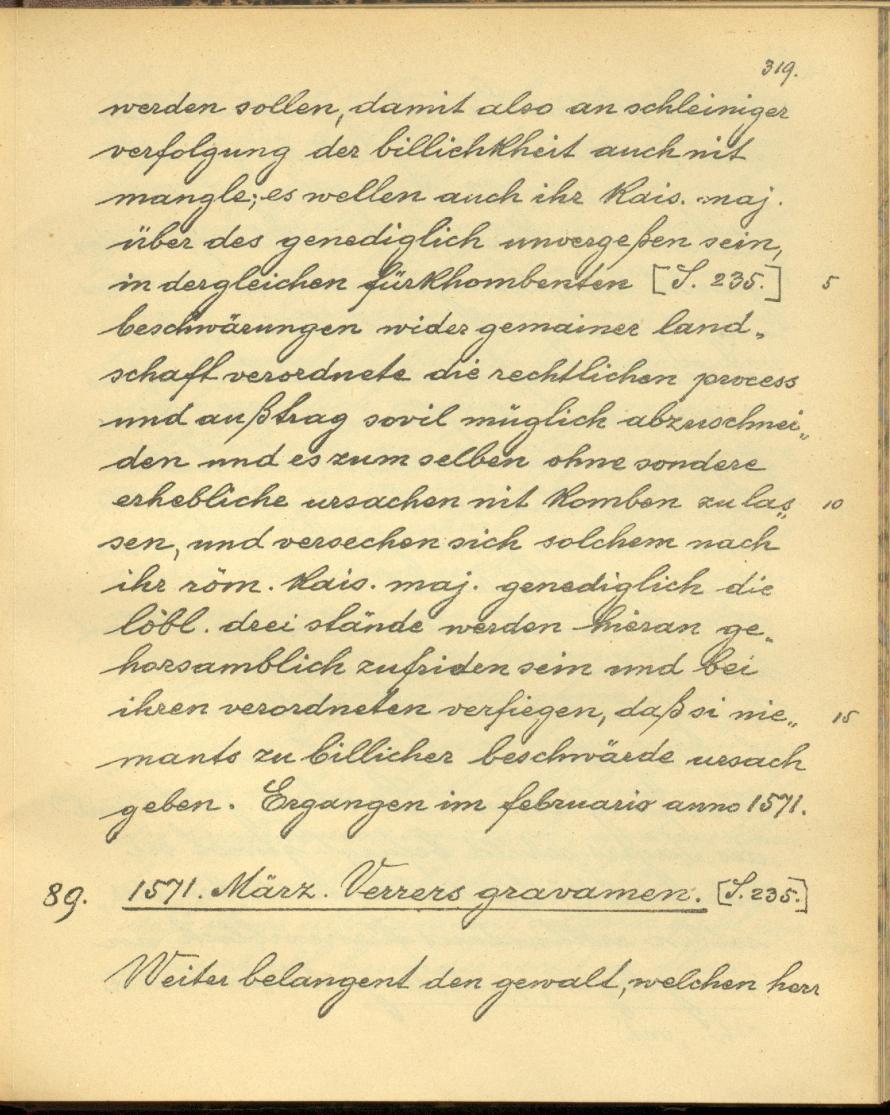 319.
werden sollen, damit also an schleiniger
verfolgung der billichkheit auch nit
mangle; es wellen auch ihr Kais. maj.
über des genediglich unvergeßen sein,
in dergleichen fürkhombenten [S. 235.] 5
beschwärungen wider gemainer land„
schaft verordnete die rechtlichen process
und außtrag sovil müglich abzuschnei„
den und es zum selben ohne sondere
erhebliche ursachen nit komben zu las„ 10
sen, und versechen sich solchem nach
ihr röm. Kais. maj. genediglich die
löbl. drei stände werden hieran ge„
horsamblich zufriden sein und bei
ihren verordneten verfiegen, daß si nie„ 15
mants zu billicher beschwärde ursach
geben. Ergangen im februario anno 1571.
89. 1571. März. Verrers gravamen. [S. 235.]
Weiter belangent den gewalt, welchen herr